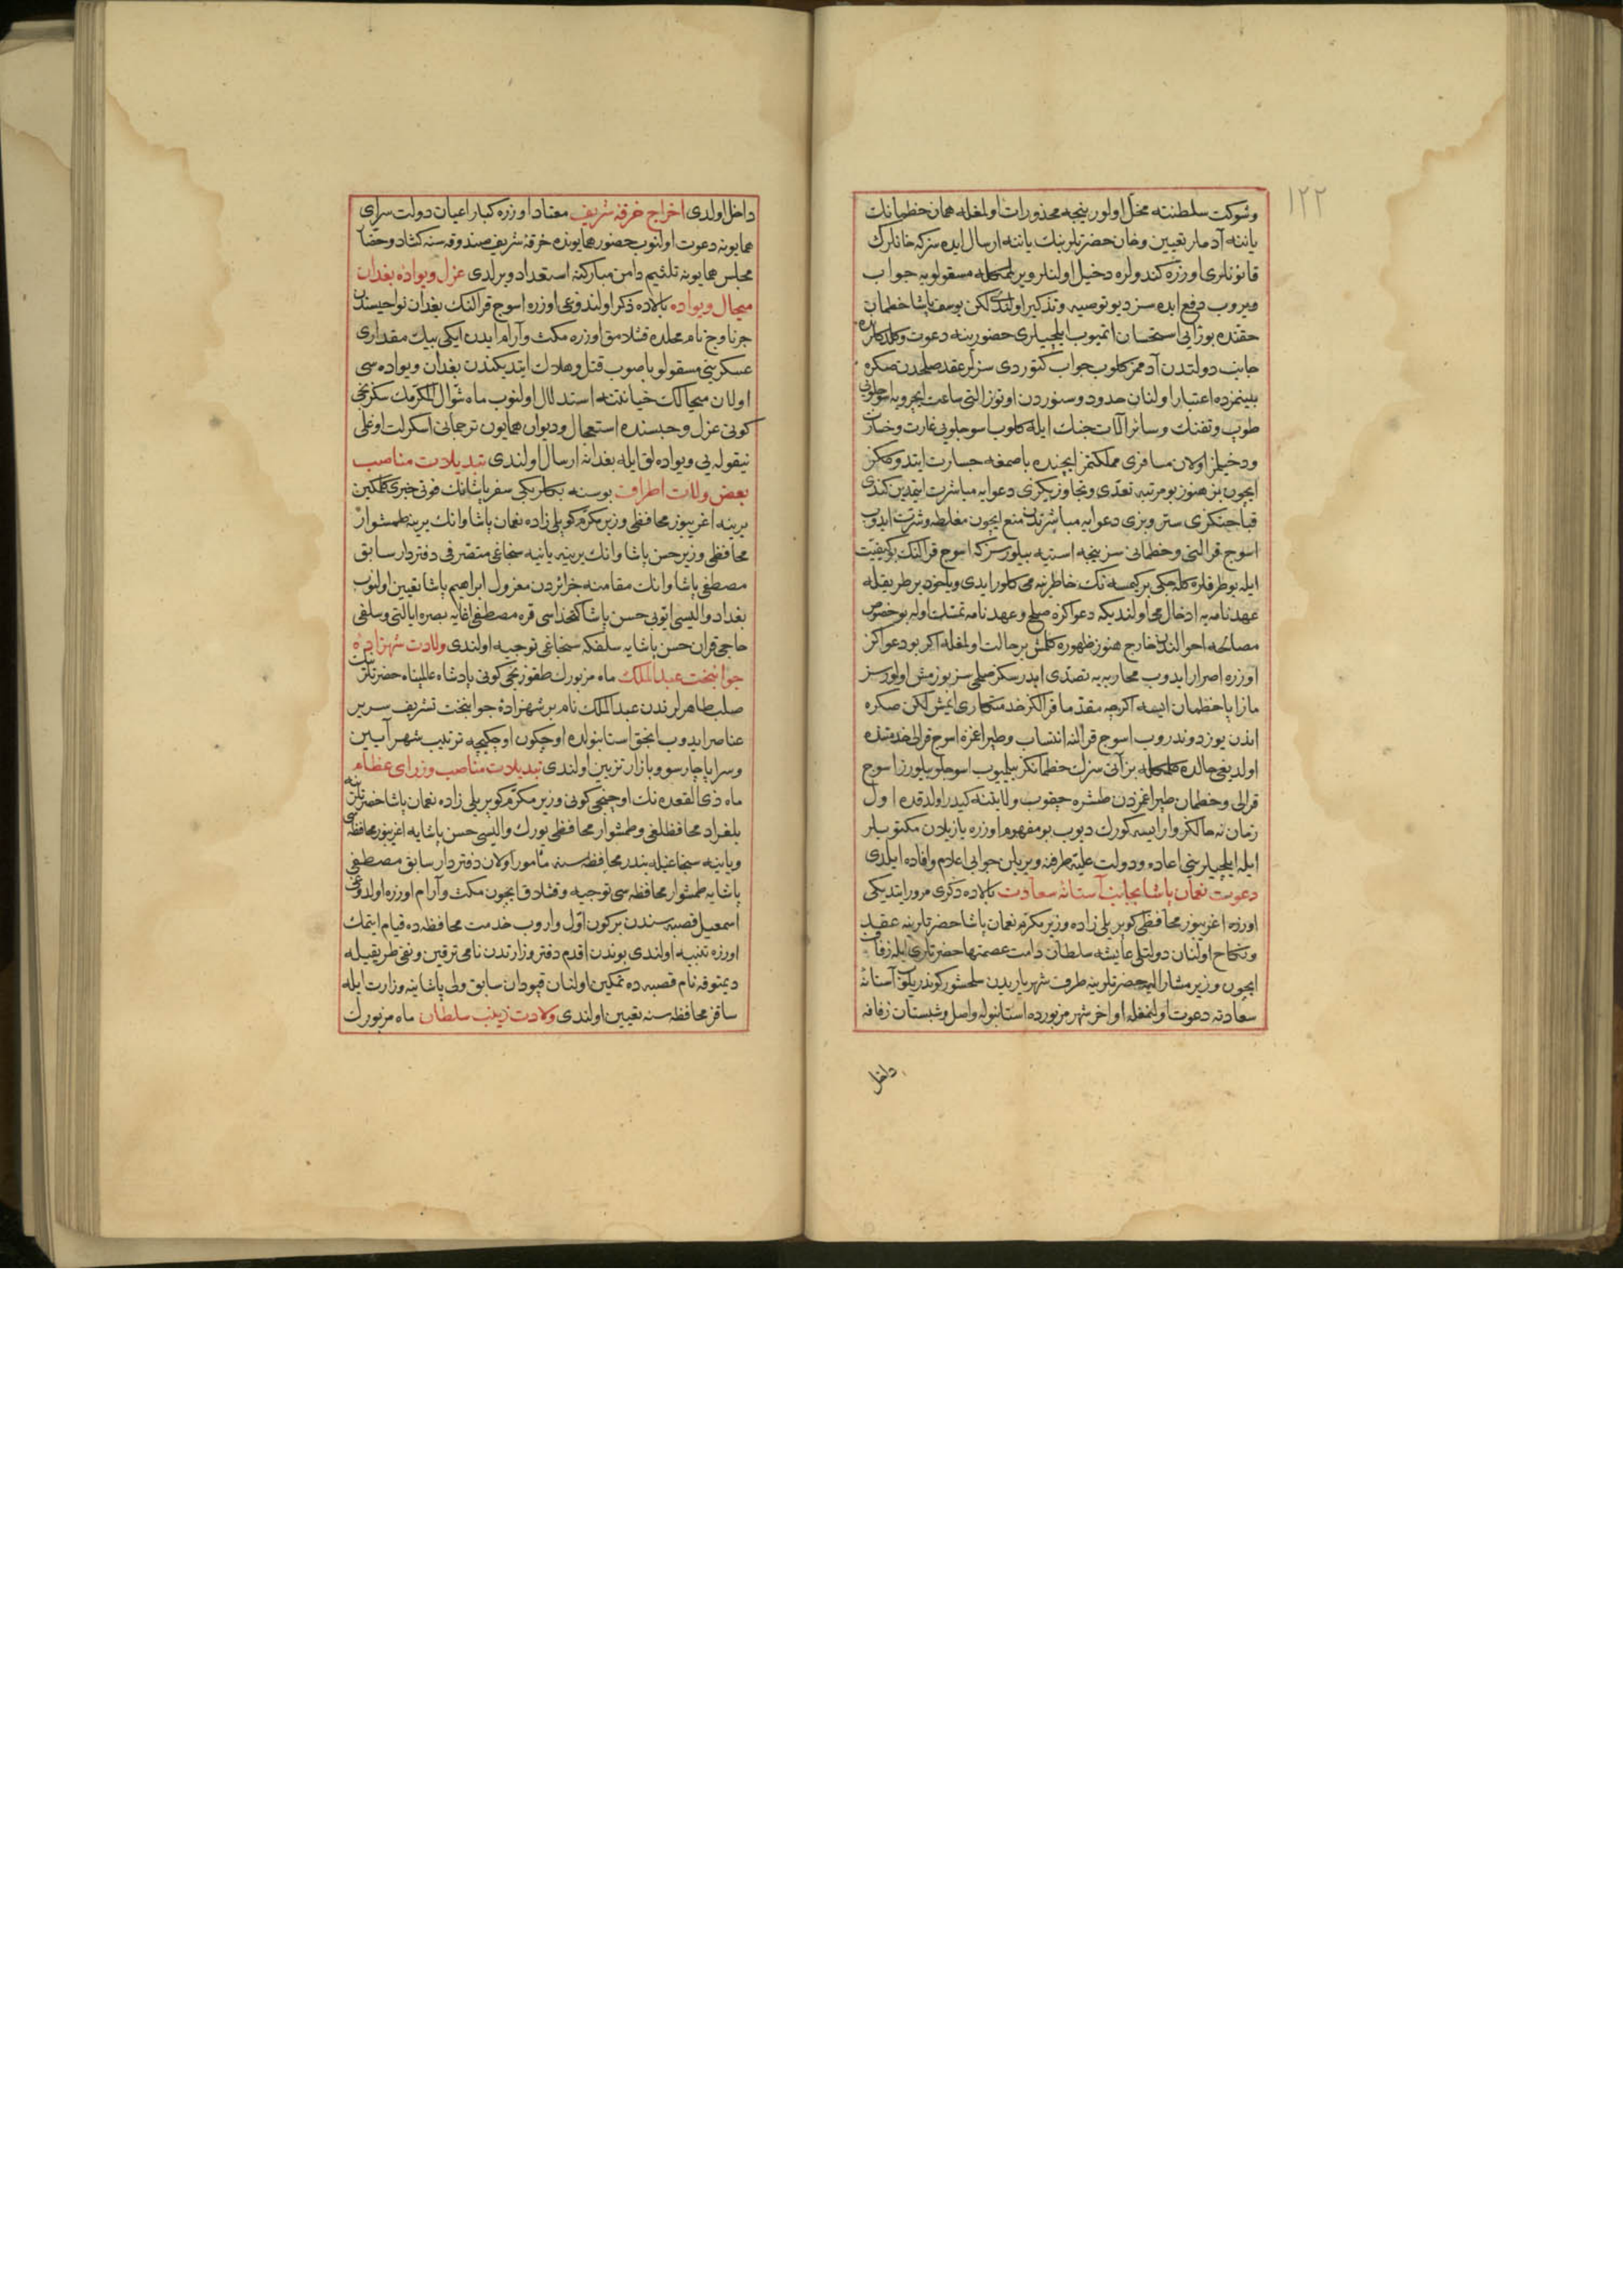 ١٢٢
وشوكت سلطنته مخل اولور نيجه محذورات اولمغله همان خطمانك
ياننه آدملر تعيين وخان حضرتلرينك ياننه ارسال ايده سز كه خانلرك
قانونلرى اوزره كندولره دخيل اولنلر ويرلمكله مسقولويه جواب
ويروب دفع ايده سز ديو توصيه وتذكير اولندى لكن يوسف پاشا خطمان
حقنده بو رأيى استحسان اتميوب ايلچيلرى حضورينه دعوت
جانب دولتدن آدممز كلوب جواب كتوردى سزلر عقد صلحدن صكره
بينمزده اعتبار اولنان حدود وسنوردن اوتوز التى ساعت ايچرويه
طوپ وتفنك وسائر آلات جنك ايله كلوب اسوجلويى غارت وخسارت
ودخيلمز اولان مسافرى مملكتمز ايچنده باصمغه جسارت ايتدوككز
ايچون بز هنوز بو مرتبه تعدى وتجاوزيكزى دعوايه مباشرت ايتمدين كندى
قباحتكزى ستر وبزى دعوايه مباشرتدن منع ايچون مغالطه وشرت ايدوب
اسوج قرالنى وخطمانى سز نيجه استيه بيلورسز كه اسوج قرالنك بو كيفيت
ايله بو طرفلره كله جكى بر كيمسه نك خاطرينه مى كلور ايدى وياخود بر طريقله
عهدنامه يه ادخالى اولنديكه دعواكزه صلح وعهدنامه تمسك اوله بو خصوص
مصالحه احوالندن خارج هنوز ظهوره كلمش بر حالت اولمغله اكر بو دعواكز
اوزره اصرار ايدوب محاربه يه تصدى ايدرسكز صلحى سز بوزمش اولورسز
مازاپا خطمان ايسه اكرچه مقدما قرالكز خدمتكارى ايمش لكن صكره
اندن يوز دوندروب اسوج قرالنه انتساب وطپراغزه اسوج قرالى خدمتنده
اولديغى حالده كلمكله بز آنى سزك خطمانكز بيلميوب اسوجلو بيلورز اسوج
قرالى وخطمان طپراغمزدن طشره چيقوب ولايتنه كيدر اولدقده اول
زمان نه حالكز وار ايسه كورك ديوب بو مفهوم اوزره يازيلان مكتوبلر
ايله ايلچيلرينى اعاده ودولت عليه طرفنه ويريلن جوابى اعلام وافاده ايلدى
دعوت نعمان پاشا بجانب آستانهٔ سعادت بالاده ذكرى مرور ايتديكى
اوزره اغريبوز محافظى كوپريلى زاده وزير مكرم نعمان پاشا حضرتلرينه عقد
ونكاح اولنان دولتلى عايشه سلطان دامت عصمتها حضرتلرى ايله زفاف
ايچون وزير مشار اليه حضرتلرينه طرف شهرياريدن سلحشور كوندريلوب آستانهٔ
سعادته دعوت اولنمغله اواخر شهر مزبورده استانبوله واصل وشبستان زفافه
داخل
داخل اولدى اخراج خرقهٔ شريف معتاد اوزره كبار اعيان دولت سراى
همايونه دعوت اولنوب حضور همايونده خرقهٔ شريف صندوقه سنه كشاد وحضار
مجلس همايونه تلثيم دامن مباركنه استعداد ويرلدى عزل ويوادهٔ بغدان
ميحال ويواده بالاده ذكر اولندوغى اوزره اسوج قرالنك بغدان نواحيسندن
جرناوج نام محلده قشلامق اوزره مكث وآرام ايدن ايكى بيك مقدارى
عسكرينى مسقولو باصوب قتل وهلاك ايتديكندن بغدان ويواده سى
اولان ميحالك خيانتنه استدلال اولنوب ماه شوال المكرمك سكزنجى
كونى عزل وحبسنده استعجال وديوان همايون ترجمانى اسكرلت اوغلى
نيقوله يى ويواده لق ايله بغدانه ارسال اولندى تبديلات مناصب
بعض ولات اطراف بوسنه بكلربكى سفر پاشانك فوتى خبرى كلمكين
يرينه اغريبوز محافظى وزير مكرم كوپريلى زاده نعمان پاشا وانك يرينه طمشوار
محافظى وزير حسن پاشا وانك يرينه يانيه سنجاغى متصرفى دفتردار سابق
مصطفى پاشا وانك مقامنه جزائردن معزول ابراهيم پاشا تعيين اولنوب
بغداد واليسى ايوبى حسن پاشا كتخداسى قره مصطفى اغايه بصره ايالتى وسلفى
حاجى قران حسن پاشايه سلفكه سنجاغى توجيه اولندى ولادت شهزادهٔ
جوانبخت عبدالملك ماه مزبورك طقوزنجى كونى پادشاه عالمپناه حضرتلرينك
صلب طاهرلرندن عبدالملك نام بر شهزادهٔ جوانبخت تشريف سرير
عناصر ايدوب انجق استانبولده اوچ كون اوچ كيجه ترتيب شهر آيين
وسراپا چارسو وبازار تزيين اولندى تبديلات مناصب وزراى عظام
ماه ذى القعده نك اوچنجى كونى وزير مكرم كوپريلى زاده نعمان پاشا حضرتلرينه
بلغراد محافظلغى وطمشوار محافظى يورك واليسى حسن پاشايه اغريبوز محافظه سى
ويانيه سنجاغيله بندر محافظه سنه مأمور اولان دفتردار سابق مصطفى
پاشايه طمشوار محافظه سى توجيه وقشلاق ايچون مكث وآرام اوزره اولدوغى
اسمعيل قصبه سندن بر كون اول واروب خدمت محافظه ده قيام ايتمك
اوزره تنبيه اولندى بوندن اقدم دفتر وزارتدن نامى ترقين ونفى طريقيله
ديمتوقه نام قصبه ده تمكين اولنان قپودان سابق ولى پاشاينه وزارت ايله
ساقز محافظه سنه تعيين اولندى ولادت زينب سلطان ماه مزبورك